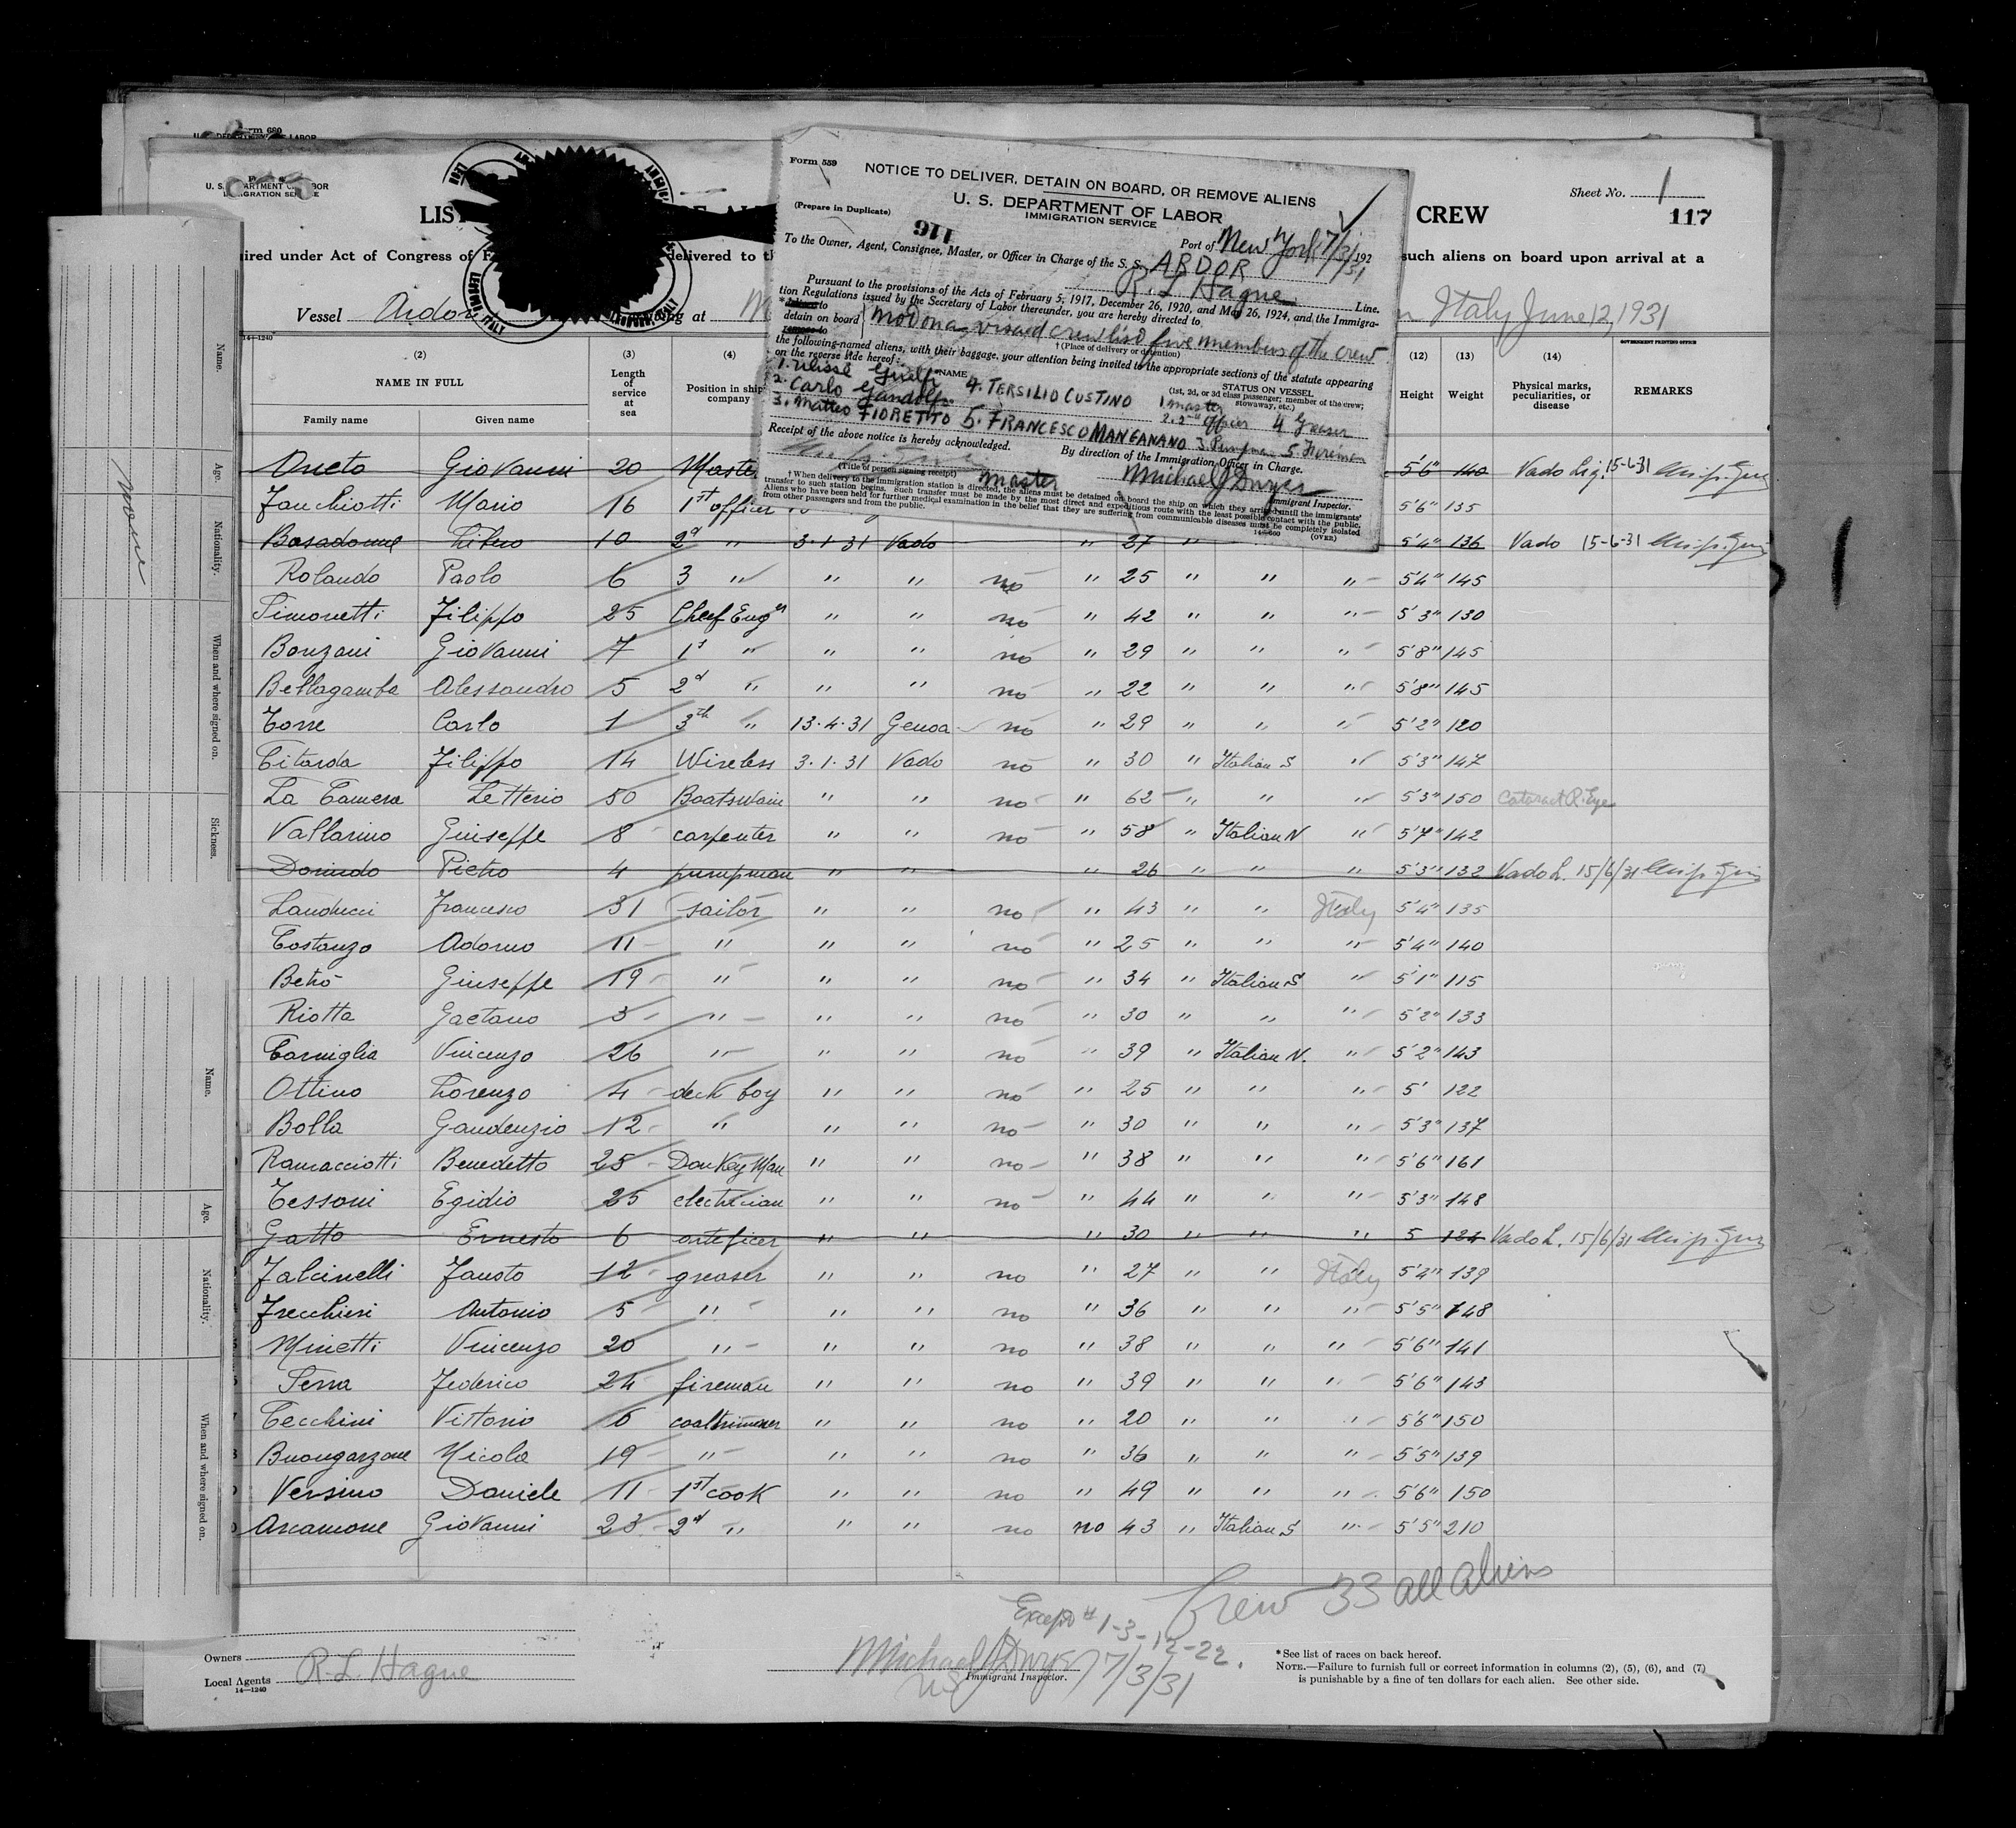 Form 680
U. S. DEPARTMENT OF LABOR
U. S. DEPARTMENT OF LABOR
IMMIGRATION SERVICE
Sheet No. 1
LIST
CREW
117
ired under Act of Congress of
delivered to
such aliens on board upon arrival at a
Vessel Ardor
at
Italy June 12, 1931
14—1240
GOVERNMENT PRINTING OFFICE
(2) (3) (4) (12) (13) (14)
NAME IN FULL
Length of service at sea
Position in ship's company
Height
Weight
Physical marks, peculiarities, or disease
REMARKS
Family name
Given name
Form 559
NOTICE TO DELIVER, DETAIN ON BOARD, OR REMOVE ALIENS
(Prepare in Duplicate)
U. S. DEPARTMENT OF LABOR
IMMIGRATION SERVICE
116
Port of New York 7/3/31, 192
To the Owner, Agent, Consignee, Master, or Officer in Charge of the S. S. ARDOR
R. L Hague Line.
Pursuant to the provisions of the Acts of February 5, 1917, December 26, 1920, and May 26, 1924, and the Immigra-
tion Regulations issued by the Secretary of Labor thereunder, you are hereby directed to
detain on board
not on a visaed crew list five members of the crew
† (Place of delivery or detention)
the following-named aliens, with their baggage, your attention being invited to the appropriate sections of the statute appearing
on the reverse side hereof:
NAME
STATUS ON VESSEL
(1st, 2d, or 3d class passenger; member of the crew; stowaway, etc.)
1. Ulisse
2. Carlo Gandolfo
4. TERSILIO CUSTINO
1 master
2. 2nd Officer 4 Greaser
3. Matteo FIORETTO 5. FRANCESCO MANGANANO 3. Pumpman 5 Fireman
Receipt of the above notice is hereby acknowledged.
By direction of the Immigration Officer in Charge.
(Title of person signing receipt) master
Michael J Dwyer
Immigrant Inspector.
† When delivery to the immigration station is directed, the aliens must be detained on board the ship on which they arrived until the immigrants'
transfer to such station begins. Such transfer must be made by the most direct and expeditious route with the least possible contact with the public.
Aliens who have been held for further medical examination in the belief that they are suffering from communicable diseases must be completely isolated
from other passengers and from the public.
14—600
(OVER)
Oneto Giovanni 20 Master 5'6" 140 Vado Lig. 15-6-31
Zanchiotti Mario 16 1st officer 5'6" 135
Basadonne Libero 10 2d " 3.1.31 Vado " 27 " 5'4" 136 Vado 15-6-31
Rolando Paolo 6 3 " " " no " 25 " " " 5'4" 145
Simonetti Filippo 25 Cheef Engr " " no " 42 " " " 5'3" 130
Bonzani Giovanni 7 1st " " " no " 29 " " " 5'8" 145
Bellagamba Alessandro 5 2d " " " no " 22 " " " 5'8" 145
Torre Carlo 1 3th " 13.4.31 Genoa no " 29 " " " 5'2" 120
Citarda Filippo 14 Wireless 3.1.31 Vado no " 30 " Italian S " 5'3" 147
La Camera Letterio 50 Boatswain " " no " 62 " " " 5'3" 150 Cataract R. Eye
Vallarino Giuseppe 8 carpenter " " no " 58 " Italian N " 5'7" 142
Donindo Pietro 4 pumpman " " " 26 " " " 5'3" 132 Vado L. 15/6/31
Landucci Francesco 31 sailor " " no " 43 " " Italy 5'4" 135
Costanzo Adorno 11 " " " no " 25 " " " 5'4" 140
Betrò Giuseppe 19 " " " no " 34 " Italian S " 5'1" 115
Riotta Gaetano 3 " " " no " 30 " " " 5'2" 133
Carniglia Vincenzo 26 " " " no " 39 " Italian N. " 5'2" 143
Ottino Lorenzo 4 deck boy " " no " 25 " " " 5' 122
Bolla Gaudenzio 12 " " " no " 30 " " " 5'3" 137
Ramacciotti Benedetto 28 Donkey Man " " no " 38 " " " 5'6" 161
Tessoni Egidio 25 electrician " " no " 44 " " " 5'3" 148
Gatto Ernesto 6 arteficer " " " 30 " " " 5 124 Vado L. 15/6/31
Falcinelli Fausto 12 greaser " " no " 27 " " Italy 5'4" 139
Frecchieri Antonio 5 " " " no " 36 " " " 5'5" 148
Minetti Vincenzo 20 " " " no " 38 " " " 5'6" 141
Serra Federico 24 fireman " " no " 39 " " " 5'6" 143
Cecchini Vittorio 6 coaltrimmer " " no " 20 " " " 5'6" 150
Buongarzone Nicola 19 " " " no " 36 " " " 5'5" 139
Versino Daniele 11 1st cook " " no " 49 " " " 5'6" 150
Ancamone Giovanni 23 2d " " " no no 43 " Italian S " 5'5" 210
Crew 33 all aliens
Except # 1-3-12-22.
Owners
Local Agents R. L. Hague
14—1240
Michael J Dwyer 7/3/31
Immigrant Inspector.
*See list of races on back hereof.
NOTE.—Failure to furnish full or correct information in columns (2), (5), (6), and (7)
is punishable by a fine of ten dollars for each alien. See other side.
Name.
Age.
Nationality.
When and where signed on.
Sickness.
none
Name.
Age.
Nationality.
When and where signed on.